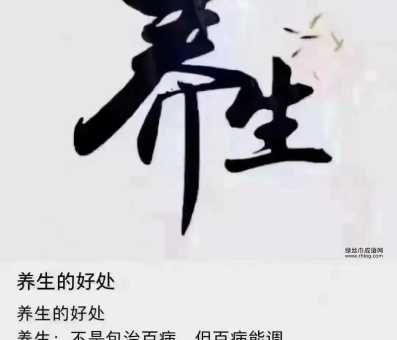 养生
绿丝巾成语网
www.rhlsg.com
养生的好处
养生的好处
养生：不是包治百病，但百病能调